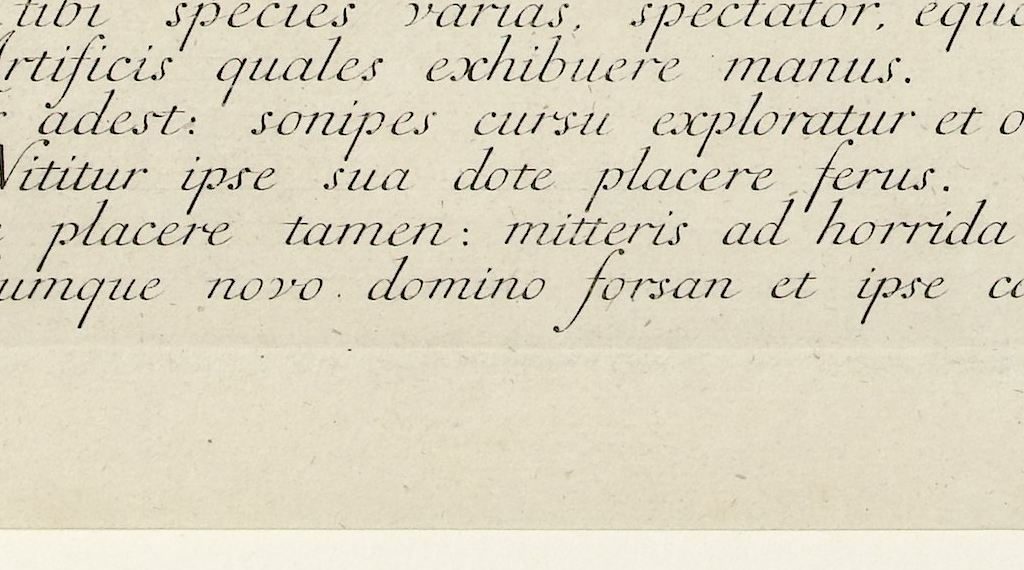 tibi species varias, spectator,
Artificis quales exhibuere manus.
adest: sonipes cursu exploratur et
Nititur ipse sua dote placere ferus.
placere tamen: mitteris ad horrida
umque novo domino forsan et ipse